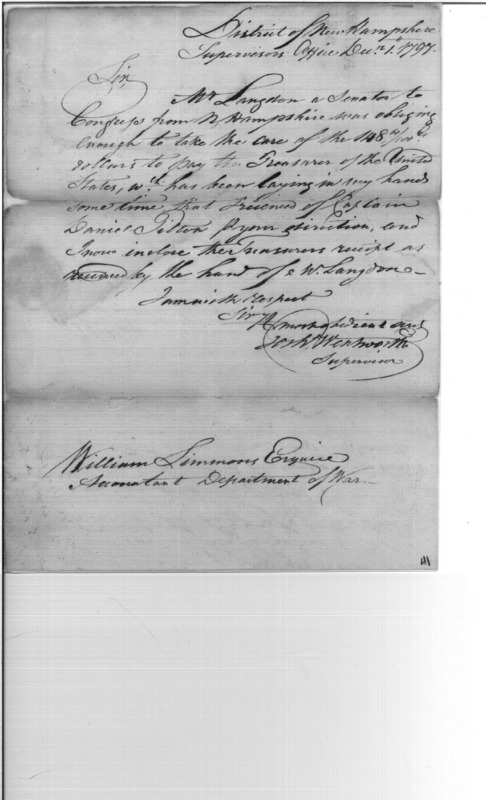 District of New Hampshire
Supervisors Office Decr. 1. 1797.
Sir,
Mr Langdon a Senator to
Congress from N Hampshire was obliging
enough to take the care of the 148
dollars to pay the Treasurer of the United
States, wch. has been laying in my hands
some time, that I received of Captain
Daniel Tilton your direction, and
I now inclose the Treasurers receipt as
received by the hand of Mr. Langdon—
I am with Respect
Sir
Yr. most obedient servt
Josh Wentworth
Supervisor
William Simmons Esquire
Accountant Department of War